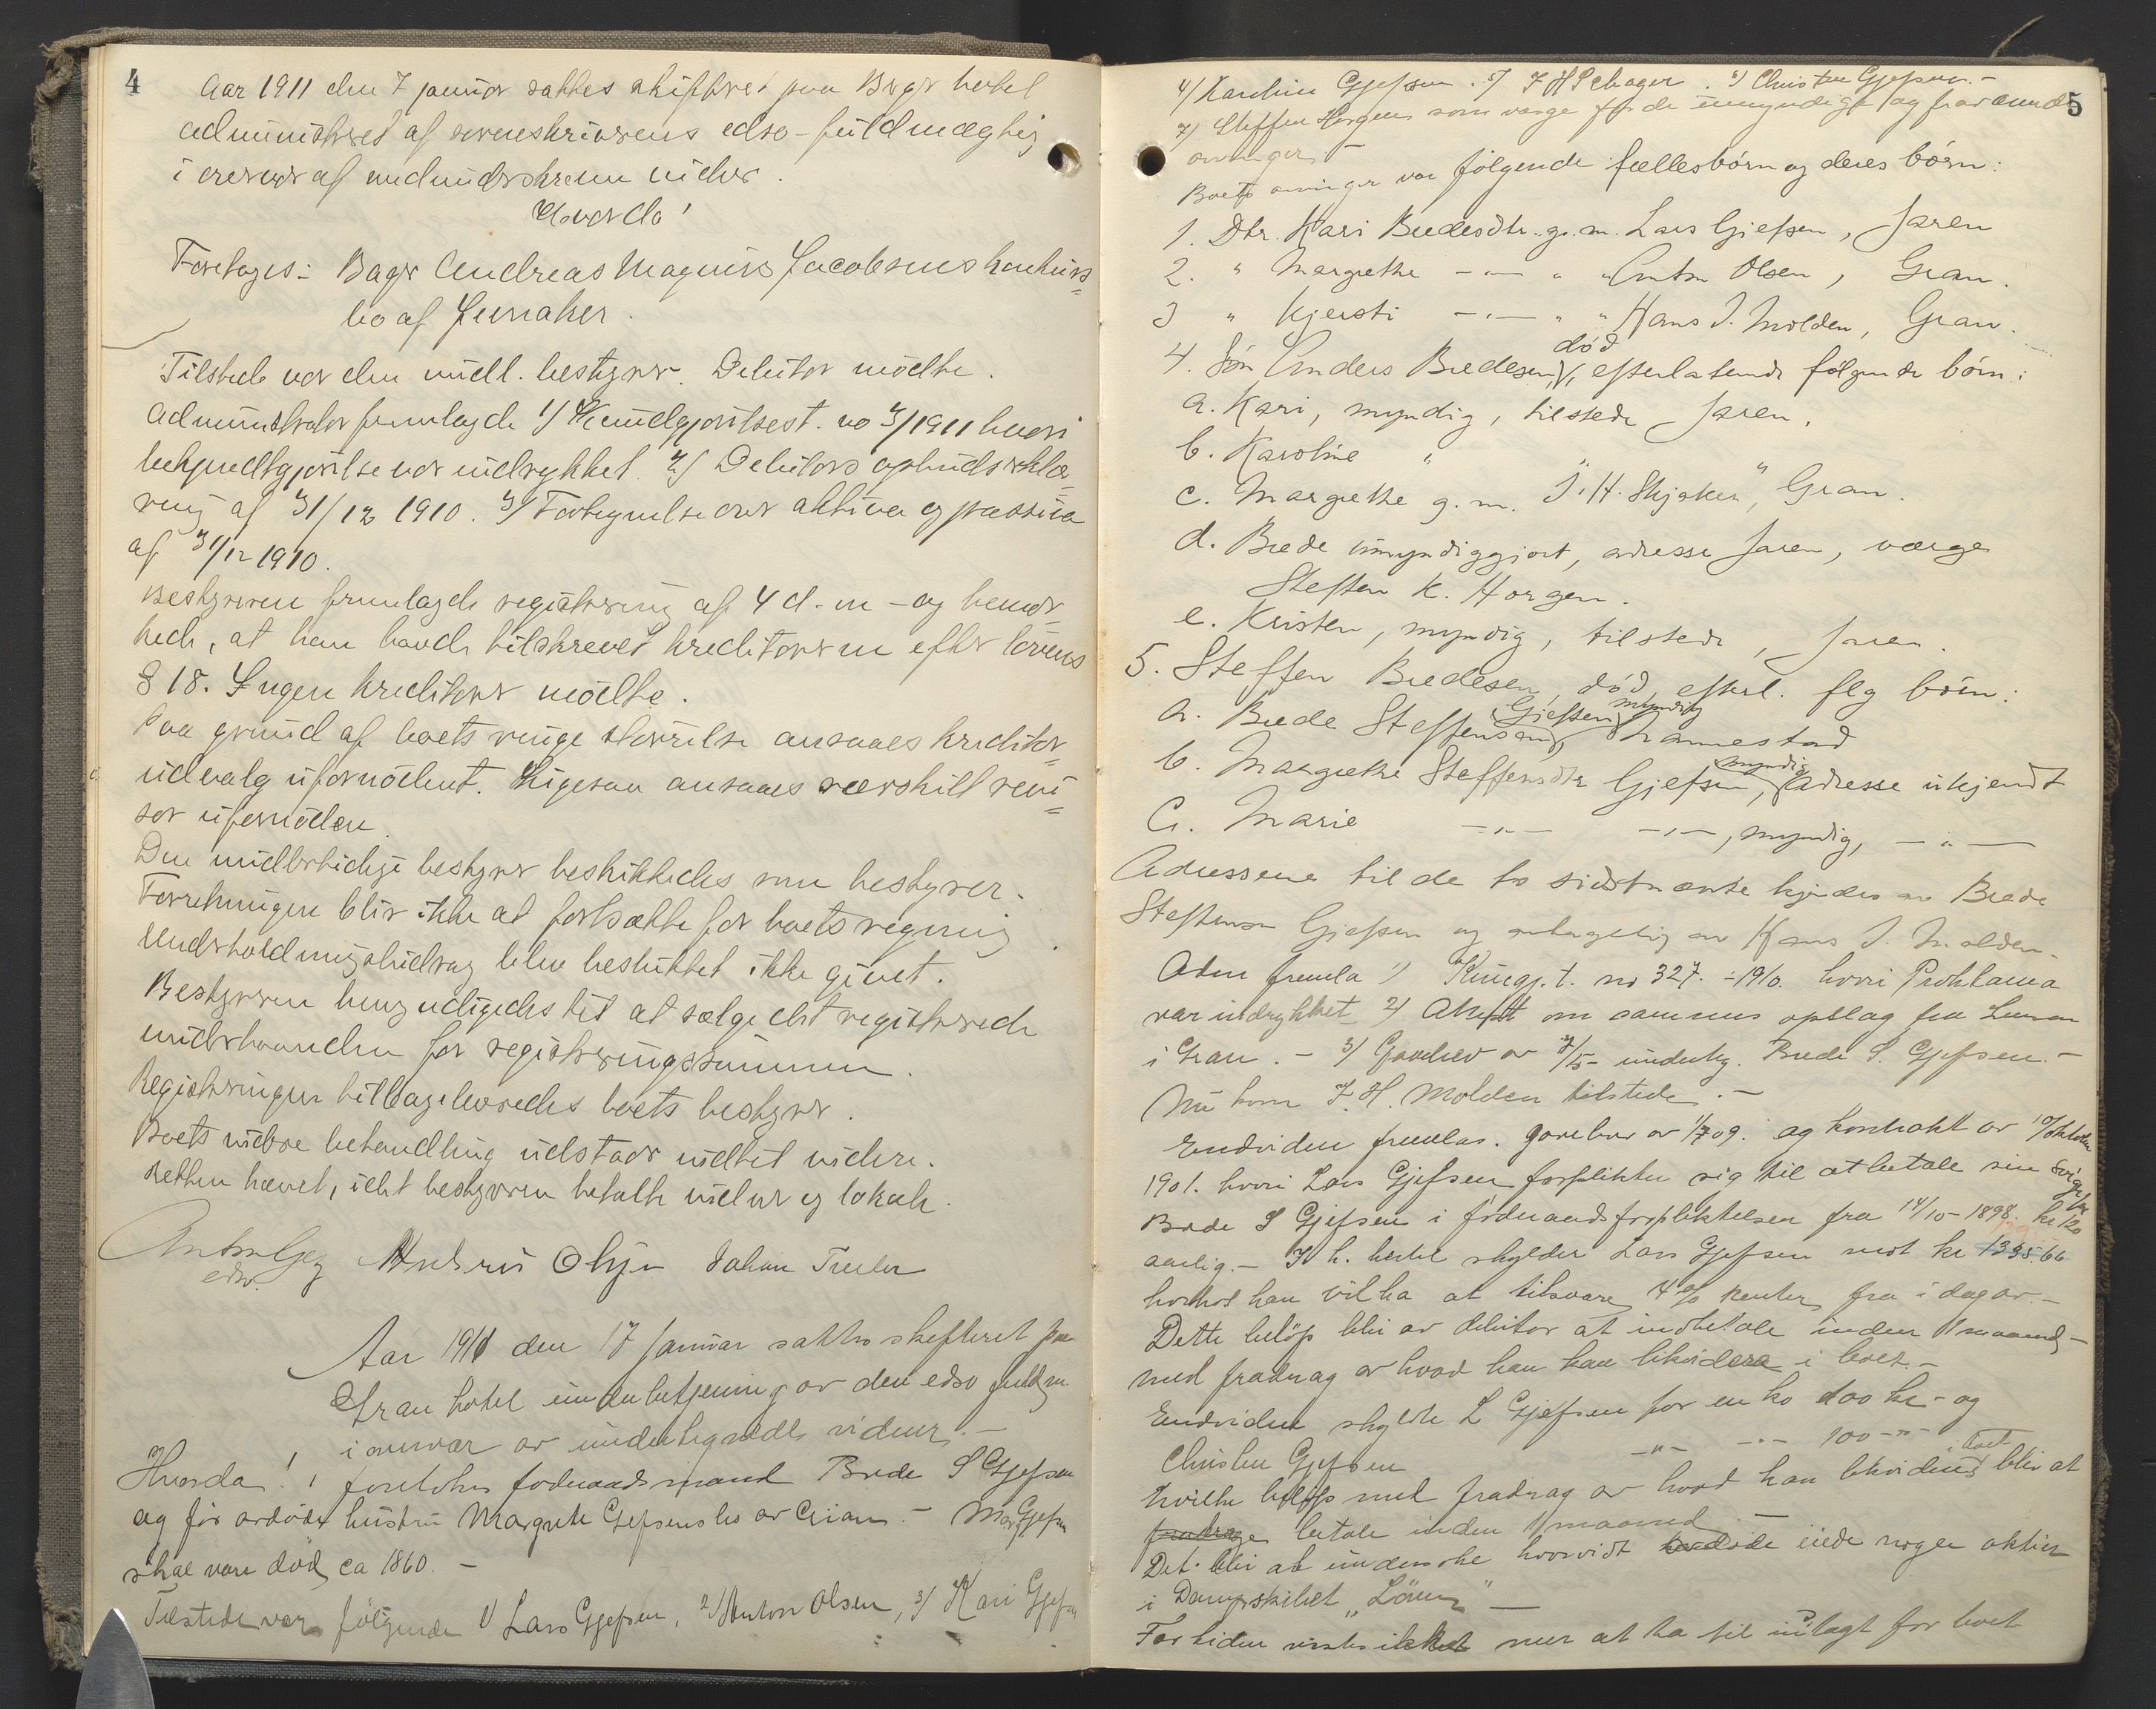 4
Aar 1911 den 7 januar sattes skifteret paa Brgs hotel
administreret af sorenskriverens edsv. fuldmægtig
i overvær af undertegnede vidner.
Hvorda!
Foretages: Bager Andreas Magnus Jacobsens konkurs=
bo af Jevnaker.
Tilstede var den midl. bestyrer. Debitor mødte.
Administrator fremlagde 1) Kundgjørelsest. no 3/1911 hvori
bekjendtgjørelse var indrykket. 2) Debitors opbudserklæ=
ring af 31/12 1910. 3) Fortegnelse over aktiva og passiva
af 31/12 1910.
Bestyreren fremlagde registrering af 4 d. m. og bemær=
kede, at han havde tilskrevet kreditorerne efter lovens
§ 18. Ingen kreditorer mødte.
Paa grund af boets ringe størrelse ansaaes kreditor=
udvalg ufornødent. Ligesaa ansaaes særskilt revi=
sor ufornøden.
Den midlertidige bestyrer beskikkedes som bestyrer.
Forretningen blir ikke at fortsætte for boets regning.
Underholdningsbidrag blev besluttet ikke givet.
Bestyreren bemyndigedes til at sælge det registrerede
underhaanden for registreringssummen.
Registreringen tilbageleveredes boets bestyrer.
Boets videre behandling udstaar indtil videre.
Retten hævet, idet bestyreren betalte vidner og lokale.
edsv.
Johan
Aar 1911 den 17 Januar sattes skifteret paa
Gran hotel under betjening av den edsv fuldm
i overvær av undertegnede vidner. -
Hvorda! foretokes føderaadsmand Brede S Gjefsen
og før avdøde hustru Margrete Gjefsens bo av Gran. - Marg Gjefsen
skal være død ca 1860. -
Tilstede var følgende 1) Lars Gjefsen, 2) Anton Olsen, 3) Kari Gjefsen
5
4) Karoline Gjefsen. 5) I H Schager. 6) Christen Gjefsen. -
7) Steffen Horgen som verge for de umyndige og fraværende
arvinger -
Boets arvinger var følgende fællesbørn og deres børn:
1. Dtr. Kari Bredesdtr. g. m. Lars Gjefsen, Jaren
2. " Margrethe -"- " " Anton Olsen, Gran.
3 " Kjersti -"- " " Hans I. Molden, Gran.
død
4. Søn Anders Bredesen, efterlatende følgende børn:
a. Kari, myndig, tilstede Jaren.
b. Karoline " " "
c. Margrethe g. m. I. H. Skjaker, Gran.
d. Brede umyndiggjort, adresse Jaren, værge
Steffen K. Horgen.
e. Kristen, myndig, tilstede, Jaren.
5. Steffen Bredesen, død, efterl. flg børn:
Gjefsen myndig
a. Brede Steffensen, Thannestad
myndig
b. Margrethe Steffensdtr Gjefsen, adresse ukjendt
c. Marie -"- -"-, myndig, -"-
Adressene til de to sidstnævnte kjendes av Brede
Steffensen Gjefsen og antagelig av Hans I. Molden.
Adm fremla 1) Kungj. t. no 327. - 1910. hvori Proklama
var indrykket 2) Attest om sammes opslag fra Lensm
i Gran. - 3) Gavebrev av 7/5- undertg. Brede S. Gjefsen. -
Nu kom I. H. Molden tilstede. -
Endvidere fremlas. gavebrev av 1/7 09. og kontrakt av 10/oktober
1901. hvori Lars Gjefsen forplikter sig til at betale sin Svigerfar
Brede S Gjefsen i føderaadsforpliktelsen fra 14/10- 1898. kr 120
aarlig. - I h. hertil skylder Lars Gjefsen mot kr 1335.66
hvorhos han vil ha at tilsvare 4% renter fra idag av. -
Dette beløp blir av debitor at indbetale inden 1 maaned -
med fradrag av hvad han kan likvidere i boet. -
Endvidere skylder L Gjefsen for en ko 100 kr - og
Christen Gjefsen -"- -"- 100 -"-
i boet
hvilke beløp med fradrag av hvad han likviderer blir at
fradrage betale inden 1 maaned -
Det blir at undersøke hvorvidt avdøde eiede nogen aktier
i Dampskibet "Løvnes" -
For tiden vistes ikke mer at ha til indtægt for boet